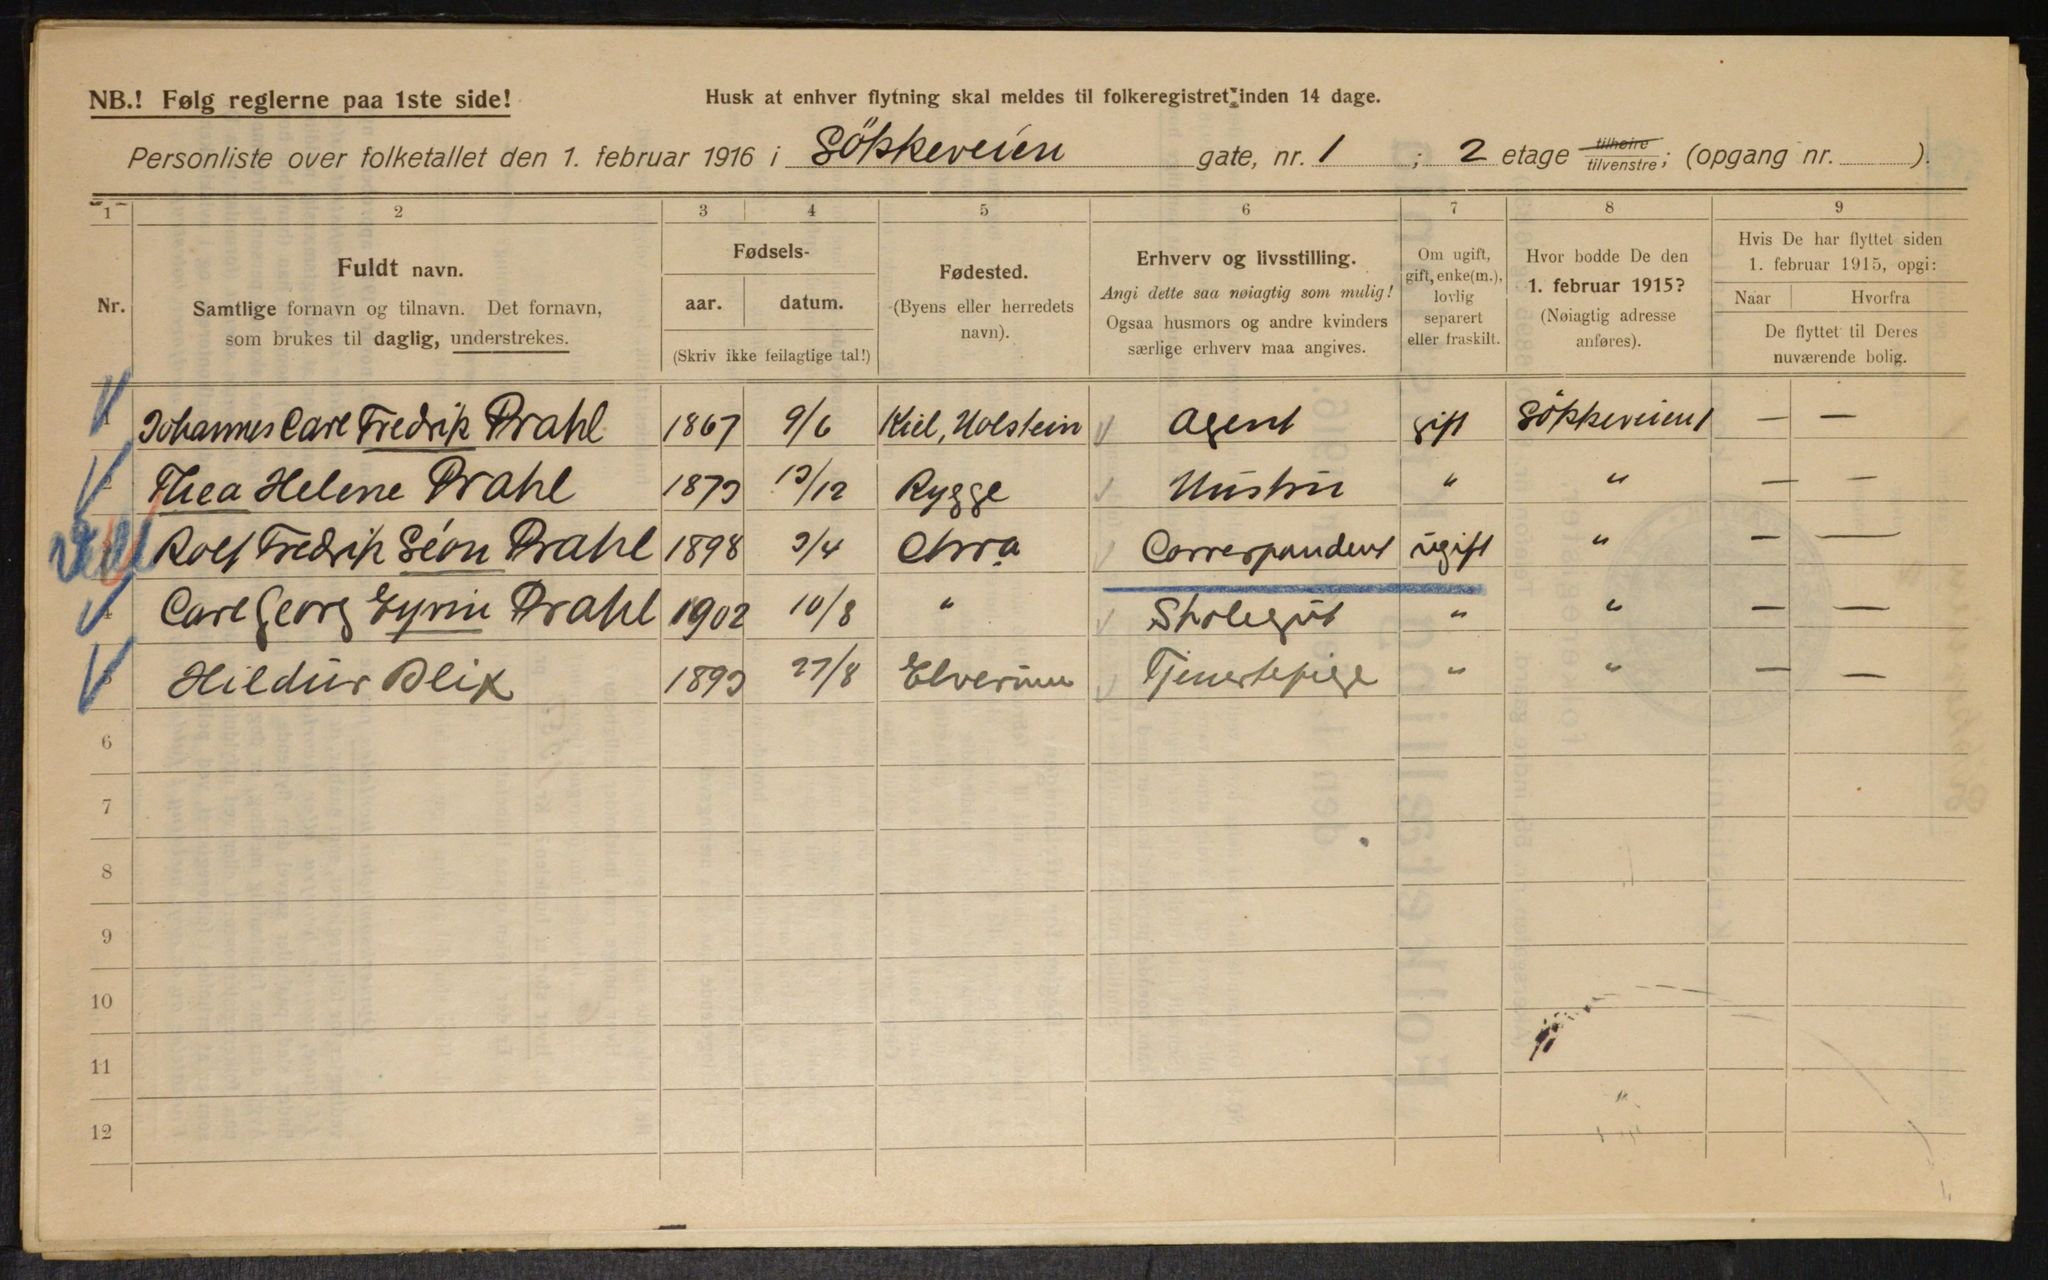 NB.! Følg reglerne paa 1ste side!
Husk at enhver flytning skal meldes til folkeregistret inden 14 dage.
Personliste over folketallet den 1. februar 1916 i Sökkeveien gate, nr. 1 ; 2 etage tilhøire/tilvenstre; (opgang nr. ).
1 2 3 4 5 6 7 8 9
Nr.
Fuldt navn.
Samtlige fornavn og tilnavn. Det fornavn,
som brukes til daglig, understrekes.
Fødsels-
aar. datum.
(Skriv ikke feilagtige tal!)
Fødested.
(Byens eller herredets
navn).
Erhverv og livsstilling.
Angi dette saa nøiagtig som mulig!
Ogsaa husmors og andre kvinders
særlige erhverv maa angives.
Om ugift,
gift, enke(m.),
lovlig
separert
eller fraskilt.
Hvor bodde De den
1. februar 1915?
(Nøiagtig adresse
anføres).
Hvis De har flyttet siden
1. februar 1915, opgi:
Naar Hvorfra
De flyttet til Deres
nuværende bolig.
Johannes Carl Fredrik Prahl 1867 9/6 Kiel, Holstein Agent gift Sökkeveien 1 — —
Thea Helene Prahl 1873 13/12 Rygge Hustru " " — —
Rolf Fredrik Prahl 1898 3/4 Chra Correspondent ugift " — —
4 Carl Georg Prahl 1902 10/8 " Skolegut " " — —
Hildur Blix 1893 27/8 Elverum Tjenestepige " " — —
6
7
8
9
10
11
12